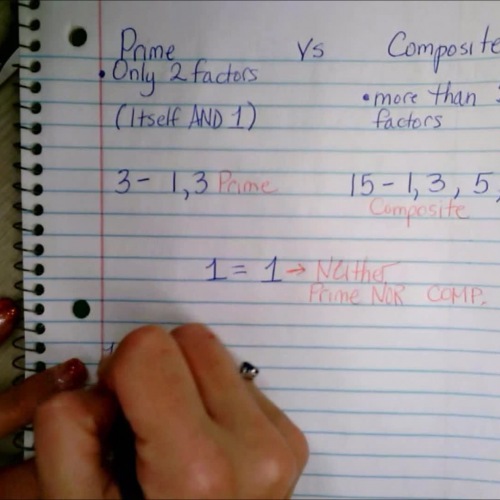 Prime vs Composite
• Only 2 factors
(Itself AND 1)
• more than
factors
3 - 1, 3 Prime
15 - 1, 3, 5,
Composite
1 = 1 → Neither
Prime NOR COMP.